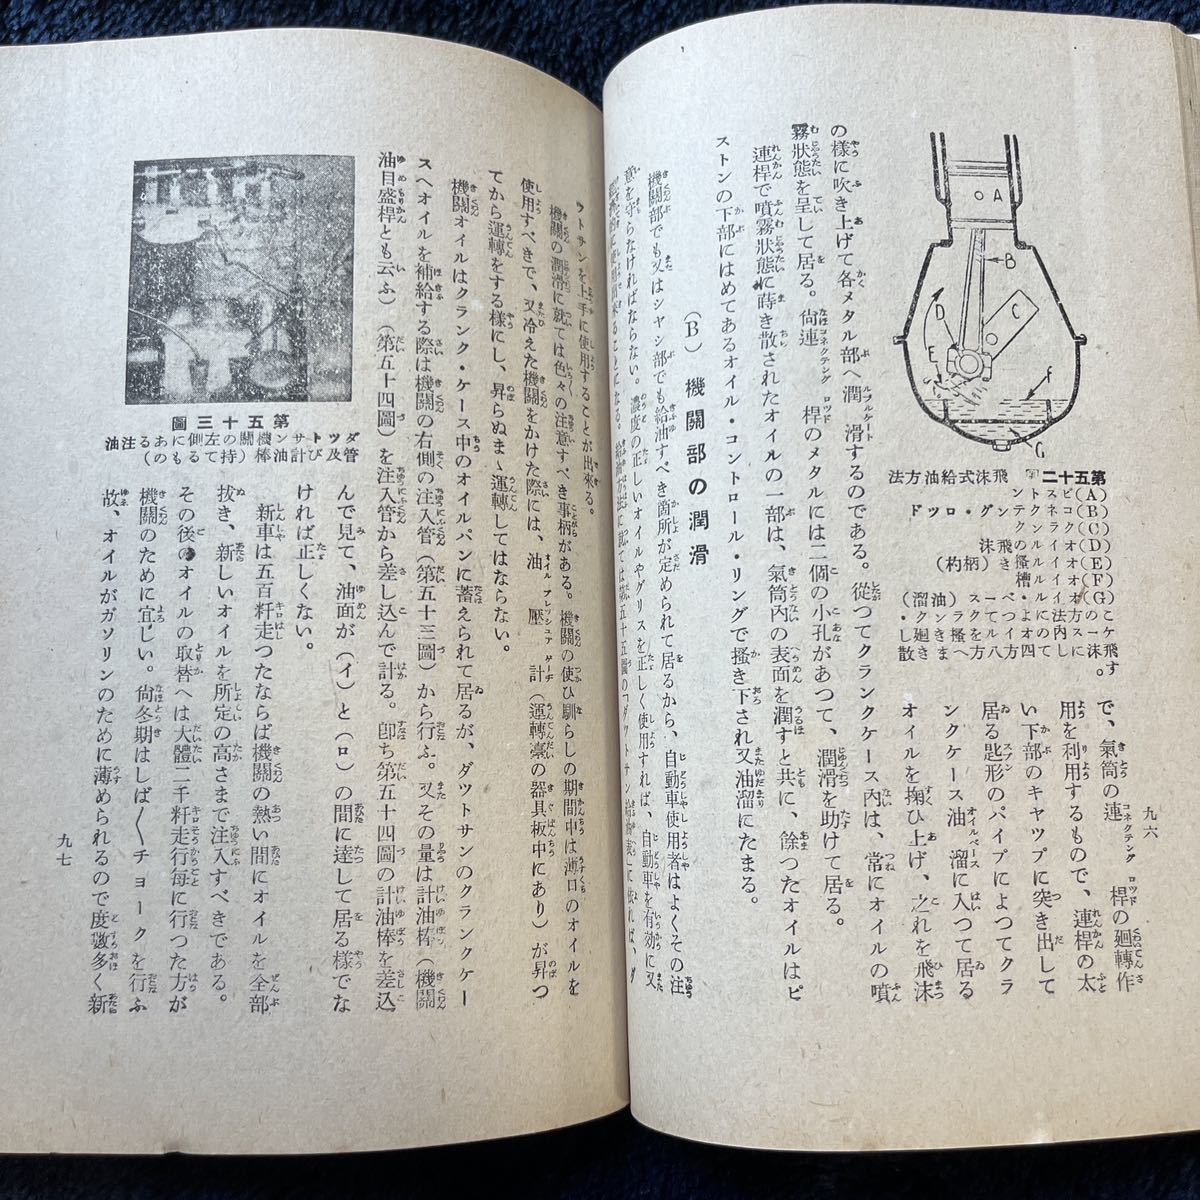 で、氣筒の連桿の廻轉作
用を利用するもので、連桿の太
い下部のキヤツプに突き出して
居る匙形のパイプによつてクラ
ンクケース油溜に入つて居る
オイルを掬ひ上げ、之れを飛沫
の樣に吹き上げて各メタル部へ潤滑するのである。從つてクランクケース內は、常にオイルの噴
霧狀態を呈して居る。尙連桿のメタルには二個の小孔があつて、潤滑を助けて居る。
連桿で噴霧狀態に蒔き散されたオイルの一部は、氣筒內の表面を潤すと共に、餘つたオイルはピ
ストンの下部にはめてあるオイル・コントロール・リングで搔き下され又油溜にたまる。
(B) 機關部の潤滑
機關部でも又はシヤシ部でも給油すべき箇所が定められて居るから、自動車使用者はよくその注
意を守らなければならない。濃度の正しいオイルやグリスを正しく使用すれば、自動車を有効に又
A
B
C
D
E
f
G
第五十二圖 飛沫式給油方法
(A)ピストン
(B)コネクテング・ロツド
(C)クランク
九六
ツトサンを上手に使用することが出來る。
機關の潤滑に就ては色々の注意すべき事柄がある。機關の使ひ馴らしの期間中は薄口のオイルを
使用すべきで、又冷えた機關をかけた際には、油壓計(運轉臺の器具板中にあり)が昇つ
てから運轉をする樣にし、昇らぬまゝ運轉してはならない。
機關オイルはクランク・ケース中のオイルパンに蓄えられて居るが、ダツトサンのクランクケー
スへオイルを補給する際は機關の右側の注入管(第五十三圖)から行ふ。又その量は計油棒(機關
油目盛桿とも云ふ)(第五十四圖)を注入管から差し込んで計る。卽ち第五十四圖の計油棒を差込
んで見て、油面が(イ)と(ロ)の間に達して居る樣でな
ければ正しくない。
新車は五百粁走つたならば機關の熱い間にオイルを全部
拔き、新しいオイルを所定の高さまで注入すべきである。
その後のオイルの取替へは大體二千粁走行每に行つた方が
機關のために宜しい。尙冬期はしば〱チョークを行ふ
故、オイルがガソリンのために薄められるので度數多く新
第五十三圖
ダツトサン機關の左側にある注油
管及び計油棒(持てるもの)
九七